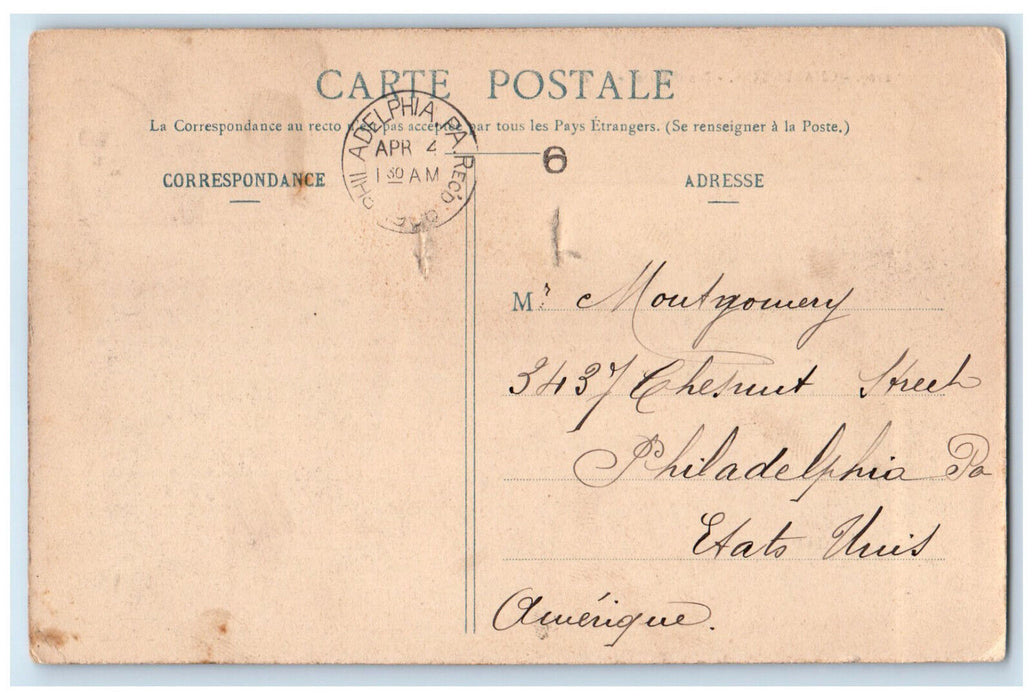 CARTE POSTALE
La Correspondance au recto pas acceptée par tous les Pays Étrangers. (Se renseigner à la Poste.)
PHILADELPHIA, PA. REC'D.
APR 4
1 30 AM
6
CORRESPONDANCE
ADRESSE
Mr Montgomery
3437 Chesnut Street
Philadelphia Pa
Etats Unis
Amérique.